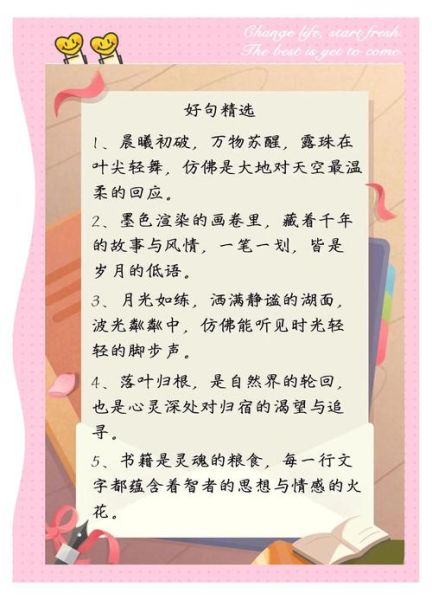 Change life, start fresh.
The best is yet to come
好句精选
1、晨曦初破，万物苏醒，露珠在
叶尖轻舞，仿佛是大地对天空最温
柔的回应。
2、墨色渲染的画卷里，藏着千年
的故事与风情，一笔一划，皆是
岁月的低语。
3、月光如练，洒满静谧的湖面，
波光粼粼中，仿佛能听见时光轻
轻的脚步声。
4、落叶归根，是自然界的轮回，
也是心灵深处对归宿的渴望与追
寻。
5、书籍是灵魂的粮食，每一行文
字都蕴含着智者的思想与情感的火
花。